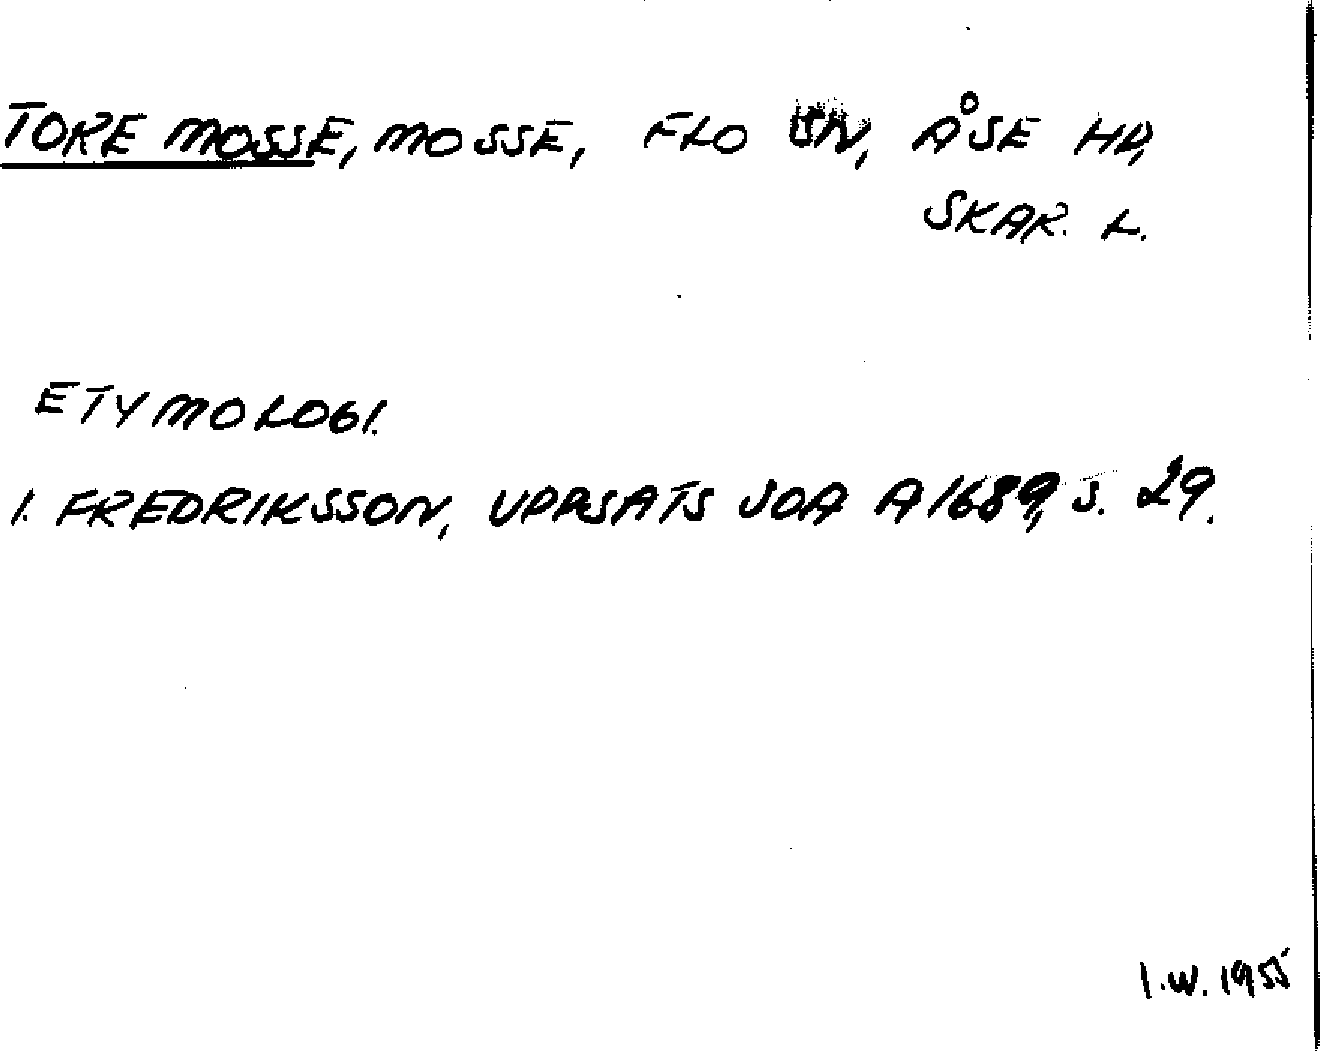 TORE MOSSE, MOSSE, FLO SN, ÅSE HD,
SKAR. L.
ETYMOLOGI.
I. FREDRIKSSON, UPPSATS SOA A1689, S. 29.
I.W. 1955